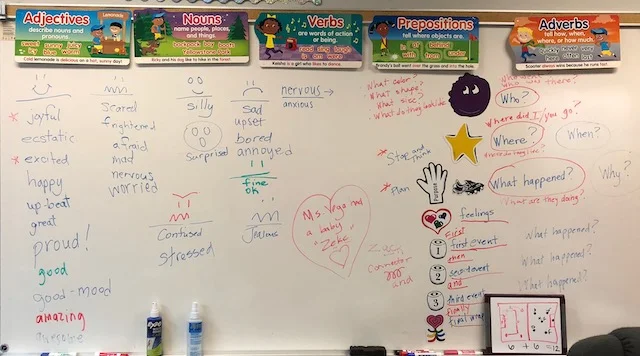 Adjectives
describe nouns and
pronouns.
Lemonade
sweet sunny juicy
icy blue calm
Cold lemonade is delicious on a hot, sunny day!
Nouns
name people, places,
and things.
backpack boy boots
Yellowstone Park
Verbs
are words of action
or being.
read sing laugh
is am were
Keisha is a girl who likes to dance.
Prepositions
tell where objects are.
in at behind
off under
Brandy's ball went over the grass and into the hole.
Adverbs
tell how, when,
where, or how much.
quickly never very
here often lost
joyful
ecstatic
excited
happy
up-beat
great
proud!
good
good-mood
amazing
awesome
scared
frightened
afraid
mad
nervous
worried
silly
surprised
sad
upset
bored
annoyed
fine
ok
nervous →
anxious
Confused
stressed
Jealous
Ms. Vega had
a baby
"Zeke"
What color?
What shape?
What size?
What do they look like
Stop and think
Plan
Purpose
feelings
First
1 first event
then
2 second event
and
3 third event
Finally
final wrap
Connector
and
Who?
Where did I/you go?
Where?
When?
What happened?
Why?
What are they doing?
What happened?
What happened?
What happened?
6 + 6 = 12
EXPO